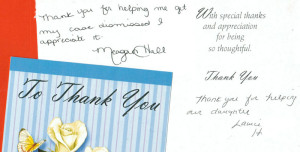 Thank you for helping me get
my case dismissed I
appreciate it.
Meagan Hall
To Thank You
With special thanks
and appreciation
for being
so thoughtful.
Thank You
Thank you for helping
our daughter
Laurie
H